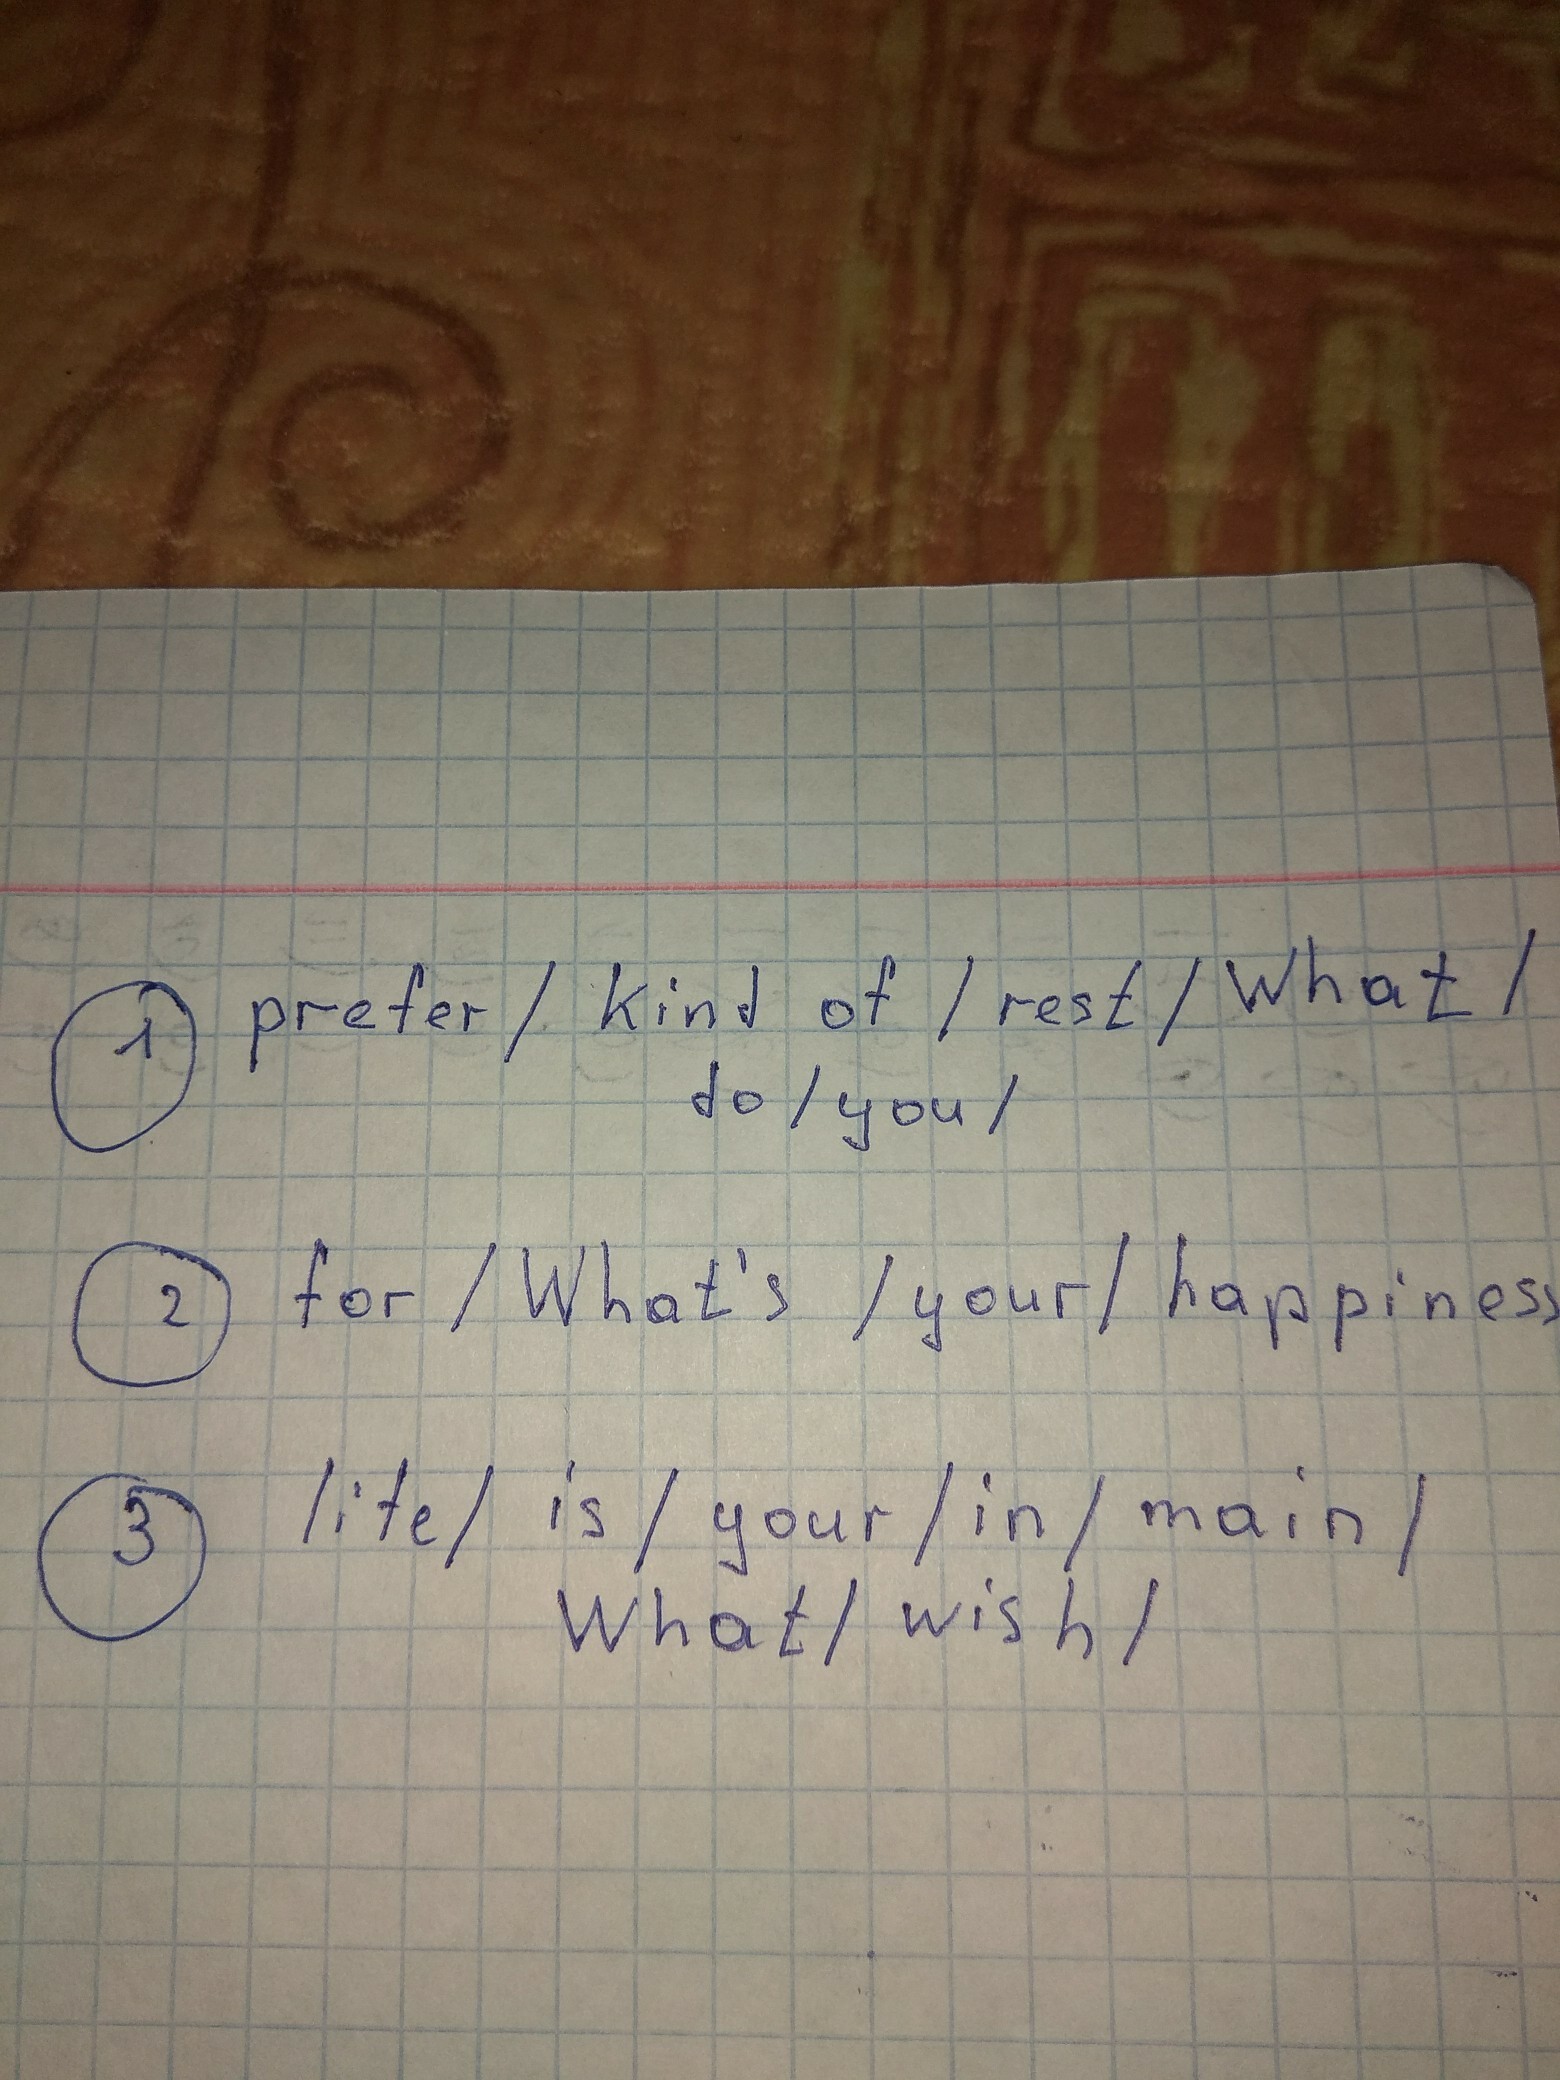 1 prefer / kind of / rest / What /
do / you /
2 for / What's / your / happiness
3 life / is / your / in / main /
What / wish /